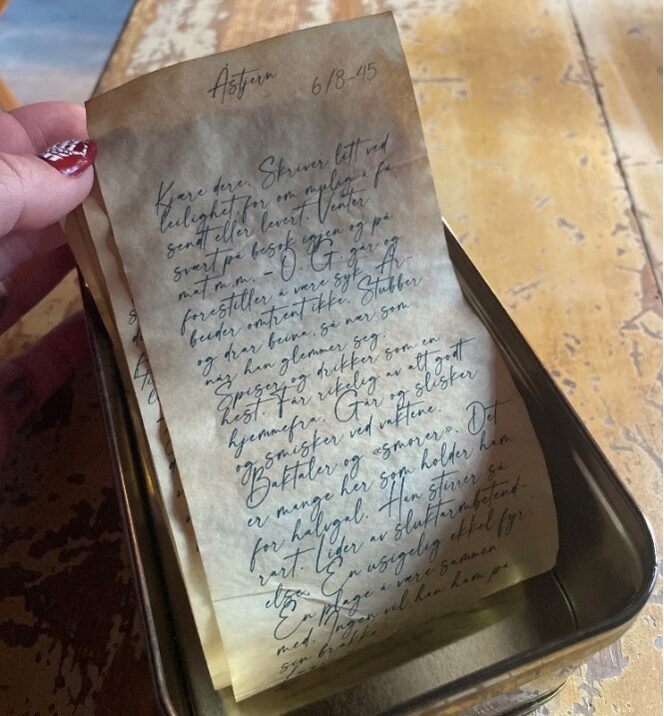 Åstjern 6/8-45
Kjære dere. Skriver litt ved
leilighet for om mulig å få
sendt eller levert. Venter
svært på besøk igjen og på
mat m.m. - O. G. går og
forestiller å være syk. Ar-
beider omtrent ikke. Stubber
og drar beina, så nær som
når han glemmer seg.
Spiser og drikker som en
hest. Får rikelig av alt godt
hjemmefra. Går og slisker
og smisker ved vaktene.
Baktaler og «smører». Det
er mange her som holder ham
for halvgal. Han stirrer så
rart. Lider av sluktarmbetend-
else. En usigelig ekkel fyr.
En plage å være sammen
med. Ingen vil han ham på
sin brakke